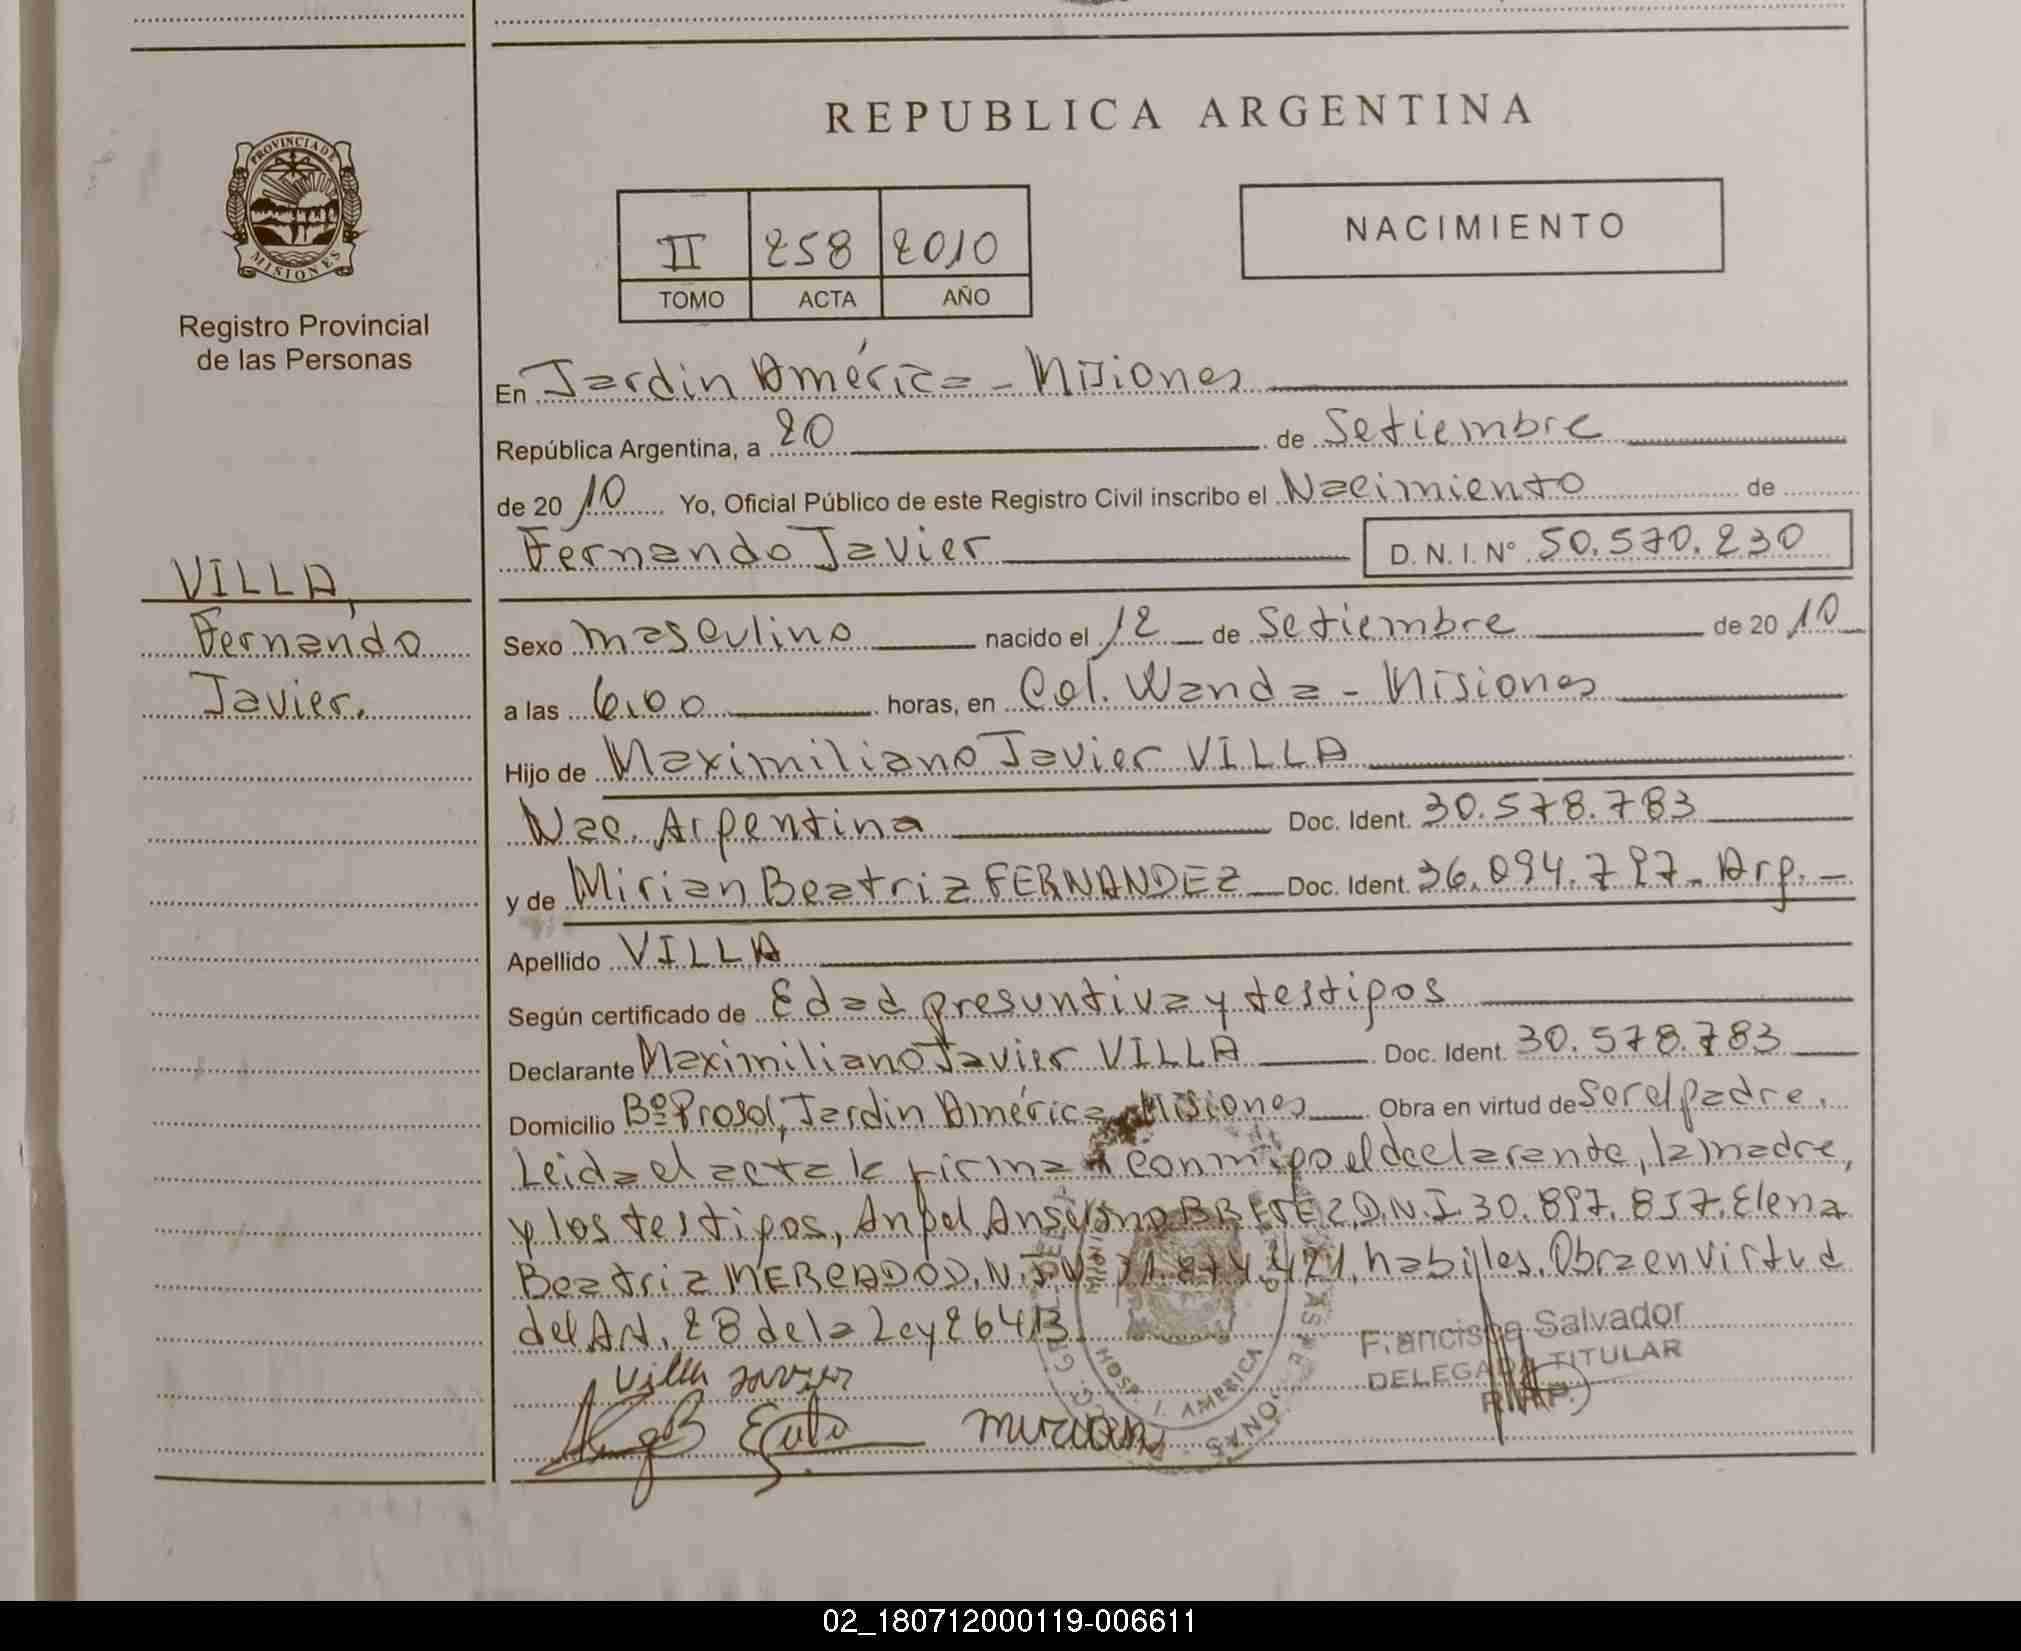 REPUBLICA ARGENTINA
PROVINCIA DE MISIONES
Registro Provincial
de las Personas
II 258 2010
TOMO ACTA AÑO
NACIMIENTO
En Jardin América - Misiones
República Argentina, a 20 de Setiembre
de 2010 Yo, Oficial Público de este Registro Civil inscribo el Nacimiento de
Fernando Javier D.N.I.Nº 50.570.230
VILLA,
Fernando
Javier.
Sexo masculino nacido el 12 de Setiembre de 2010
a las 6,00 horas, en Col. Wanda - Misiones
Hijo de Maximiliano Javier VILLA
Nac. Argentina Doc. Ident. 30.578.783
y de Mirian Beatriz FERNANDEZ Doc. Ident. 36.094.797 - Arg. -
Apellido VILLA
Según certificado de Edad presuntiva y testigos
Declarante Maximiliano Javier VILLA Doc. Ident. 30.578.783
Domicilio Bº Prosol, Jardin América, Misiones Obra en virtud de ser el padre.
Leida el acta la firma conmigo el declarante, la madre,
y los testigos, Angel Anselmo D.N.I. 30.897.857. Elena
Beatriz MERCADO D.N.I. habiles. Obra en virtud
del Art. 28 de la Ley 26413.
Villa Javier
Francisca Salvador
DELEGADA TITULAR
R.P.P.
HOSP. J. AMERICA
02_180712000119-006611